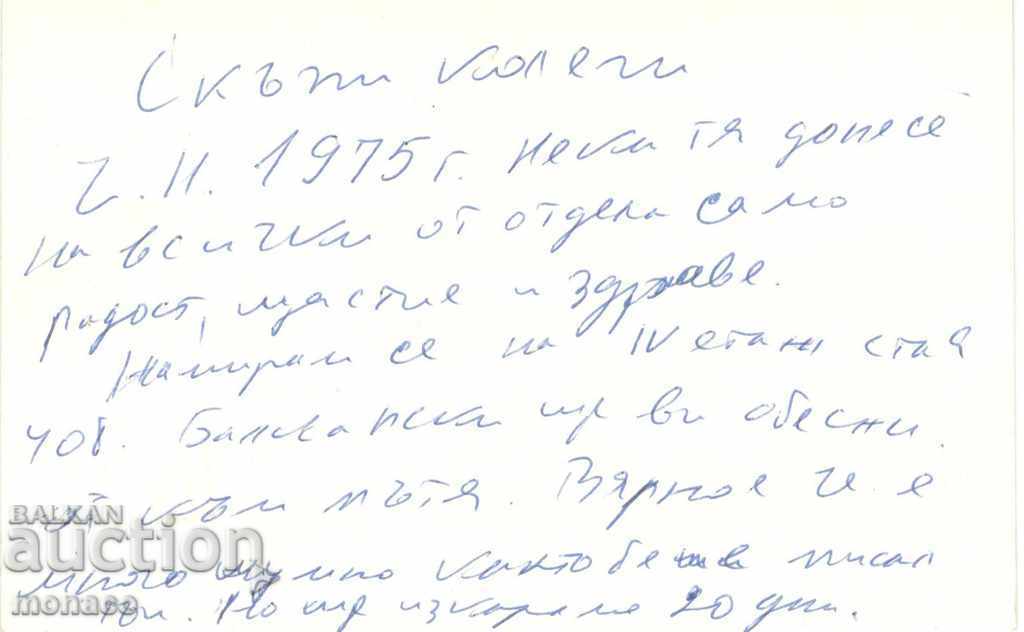 Скъпи колеги
Ч.Н. 1975 г. Нека тя донесе
на всички от отдела само
радост, щастие и здраве.
Намирам се на IV етаж стая
408. Балкански ще ви обесни
от към пътя. Вярно е че е
много шумно както беше писал
Но ще изкараме 20 дни.
BALKAN
auction
monaco